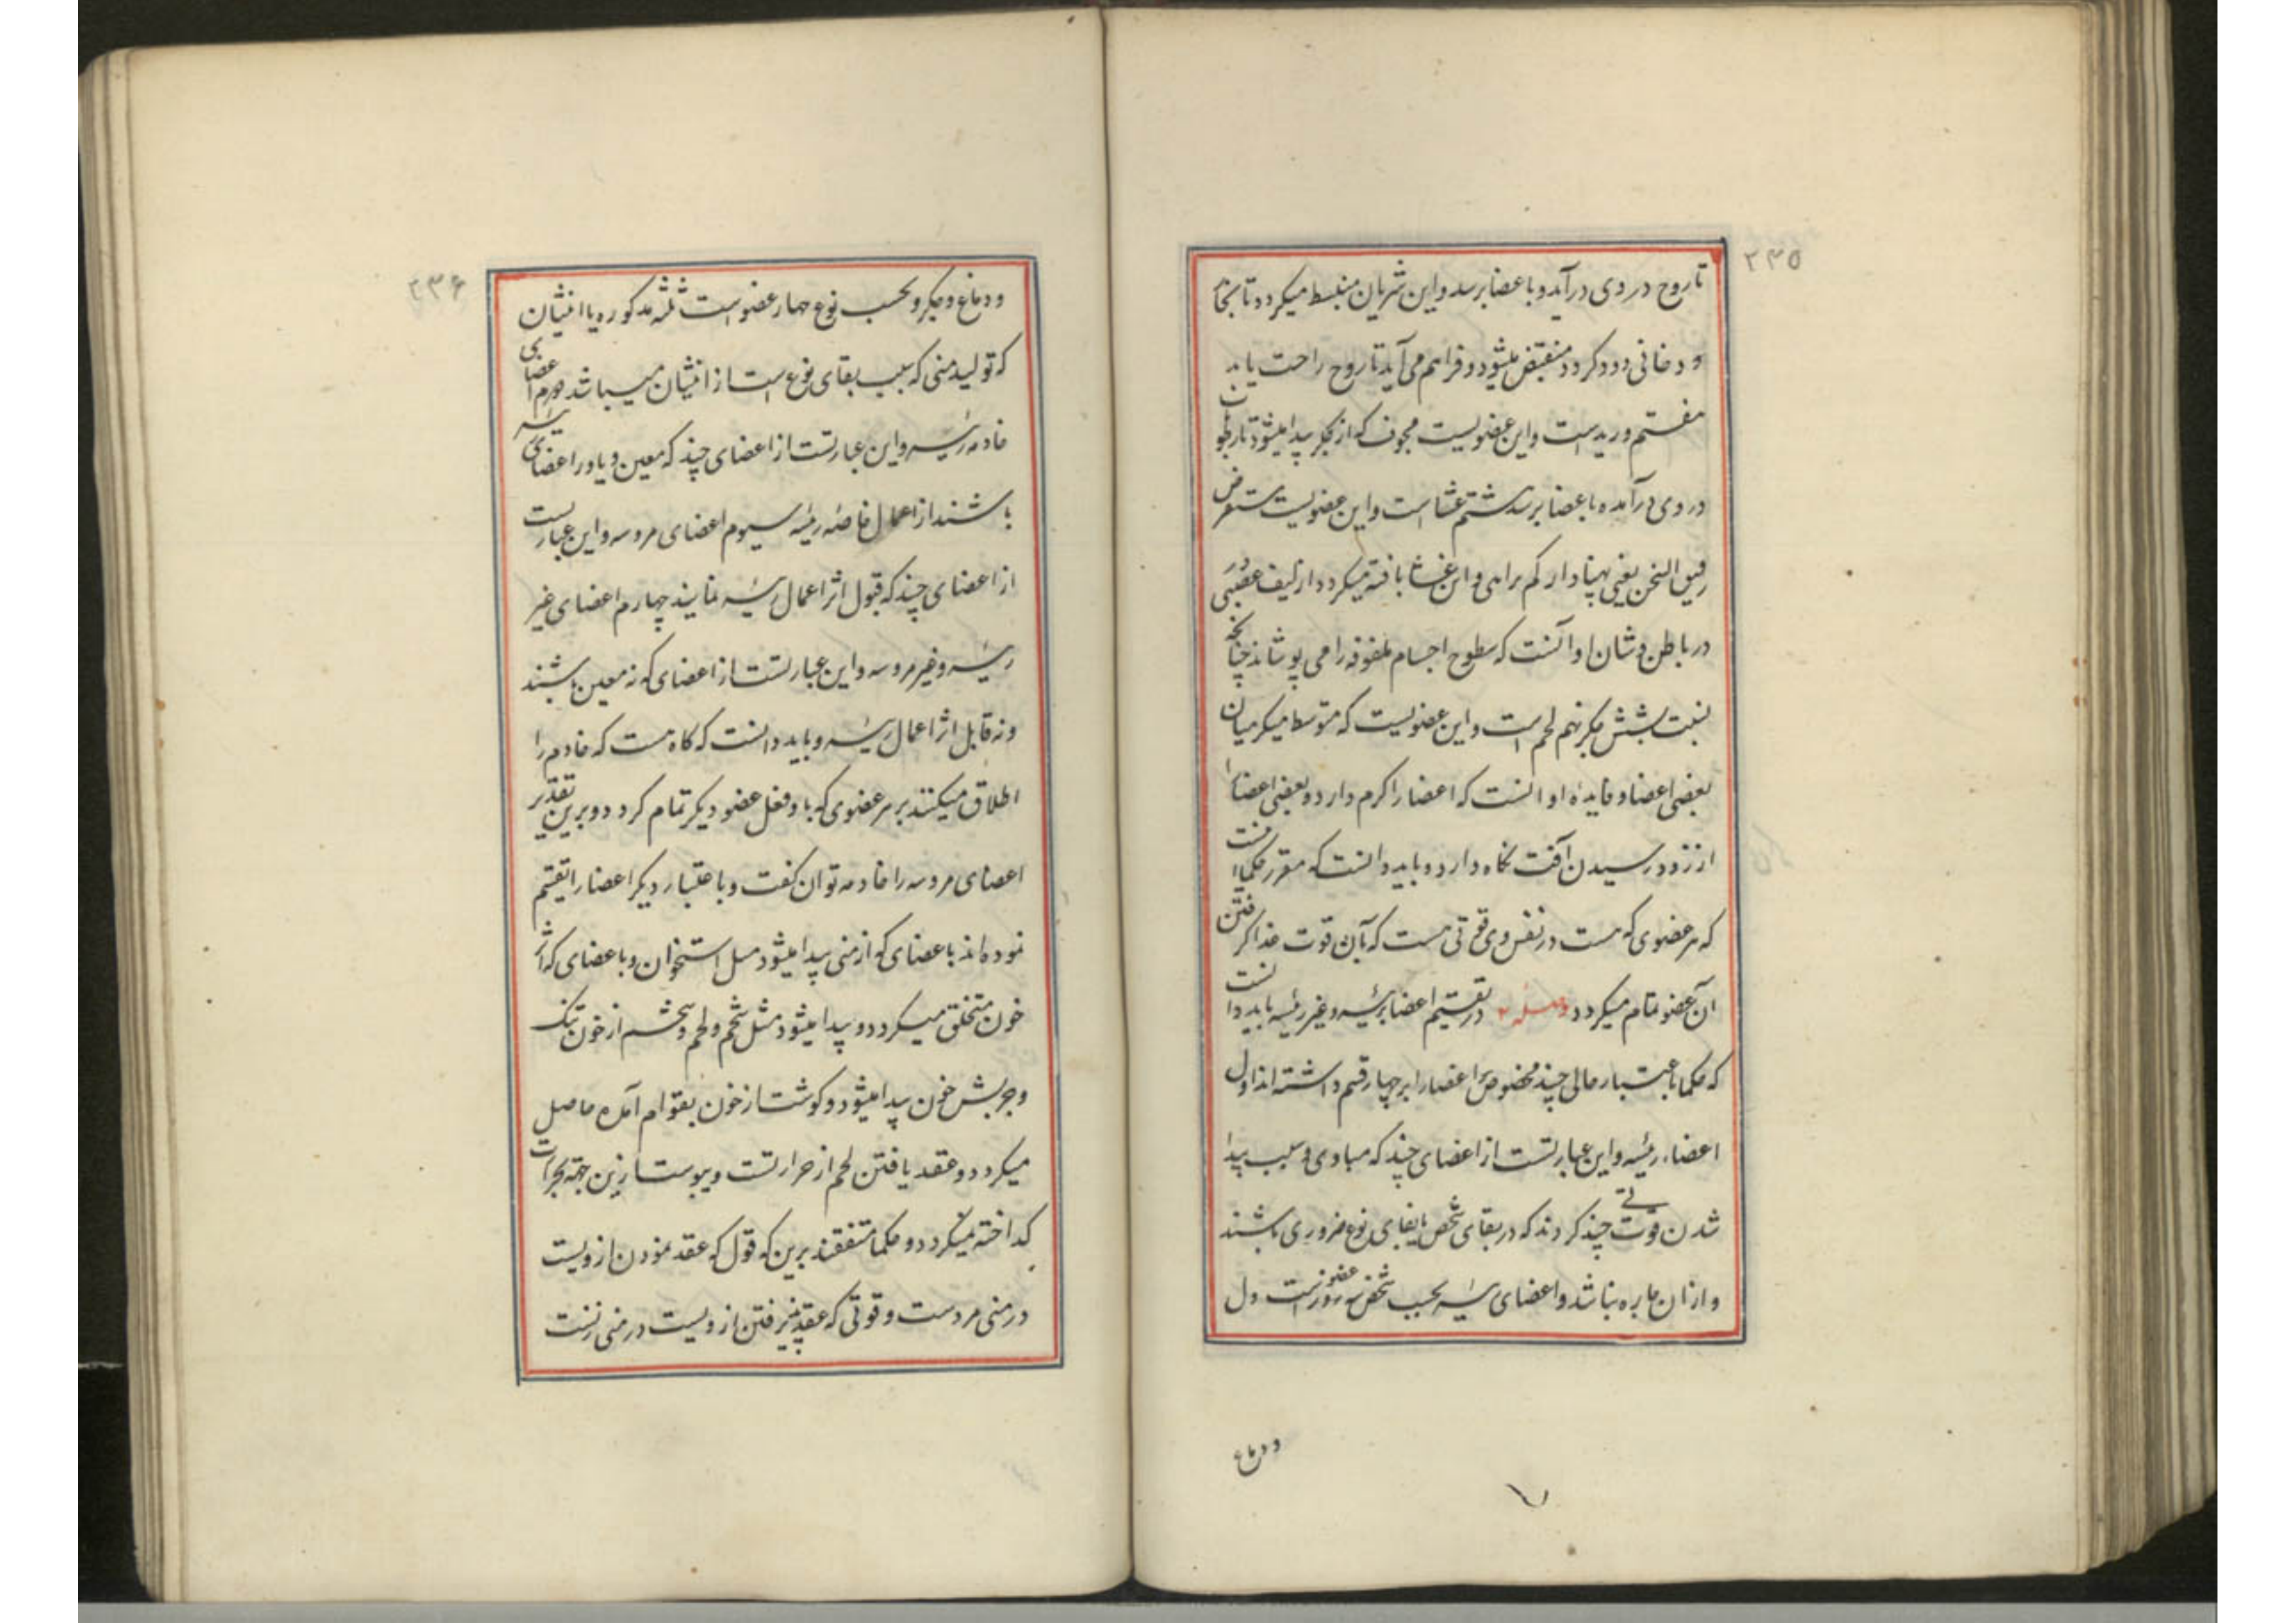 ۲۳۵
تا روح در وی درآید و باعضا برسد و این شریان منبسط میکردد تا بخا
و دخانی دود کردد منقبض میشود و فراهم می آید تا روح راحت یابد
هفتم ورید است و این عضویست مجوف که از جکر پیدا میشود تا رطوبا
در وی درآمده باعضا برسد هشتم غشا است و این عضویست مستعرض
رقیق الثخن یعنی پهنادار کم براهی و این غشا بافته میکردد از لیف عصبی
در باطن و شان او آنست که سطوح اجسام ملفوفه را می پوشاند چنانچه
نسبت بشش جکر نهم لحم است و این عضویست که متوسط میکر میان
بعضی اعضا و فایده او انست که اعضا را کرم دارد و بعضی اعضا را
از زود رسیدن آفت نکاه دارد و باید دانست که مقرر حکما است
که هر عضوی که هست در نفس وی قوتی هست که بآن قوت غذا کرفتن
آن عضو تمام میکردد وصله ۲ در تقسیم اعضا برئیسه و غیر رئیسه باید دانست
که حکما باعتبار حالی چند مخصوص اعضا را بر چهار قسم داشته اند اول
اعضاء رئیسه و این عبارتست از اعضای چند که مبادی و سبب پیدا
شدن قوت چند کردند که در بقای شخص یا بقای نوع ضروری باشند
و از ان چاره نباشد و اعضای رئیسه بحسب شخص سه عضو است دل
و دماغ
۲۳۶
و دماغ و جکر و بحسب نوع چهار عضو است ثلثه مذکوره با انثیان
که تولید منی که سبب بقای نوع است از انثیان میباشد دوم اعضای
خادمه رئیسه و این عبارتست از اعضای چند که معین و یاور اعضای رئیسه
باشند از اعمال خاصه رئیسه سیوم اعضای مروسه و این عبارتست
از اعضای چند که قبول اثر اعمال رئیسه نمایند چهارم اعضای غیر
رئیسه و غیر مروسه و این عبارتست از اعضای که نه معین باشند
و نه قابل اثر اعمال رئیسه و باید دانست که کاه هست که خادم را
اطلاق میکنند بر هر عضوی که با و فعل عضو دیکر تمام کردد و برین تقدیر
اعضای مروسه را خادمه توان کفت و باعتبار دیکر اعضا را تقسیم
نموده اند باعضای که از منی پیدا میشود مثل استخوان و باعضای که از
خون متخلق میکردد و پیدا میشود مثل شحم و لحم و شحم از خون تنک
و چربش خون پیدا میشود و کوشت از خون بقوام آمده حاصل
میکردد و عقد یافتن لحم از حرارتست و یبوست ازین جهة بحرارت
کداخته نمیکردد و حکما متفقند برین که قول که عقد نمودن ازویست
در منی مردست و قوتی که عقد پذیرفتن ازویست در منی زنست